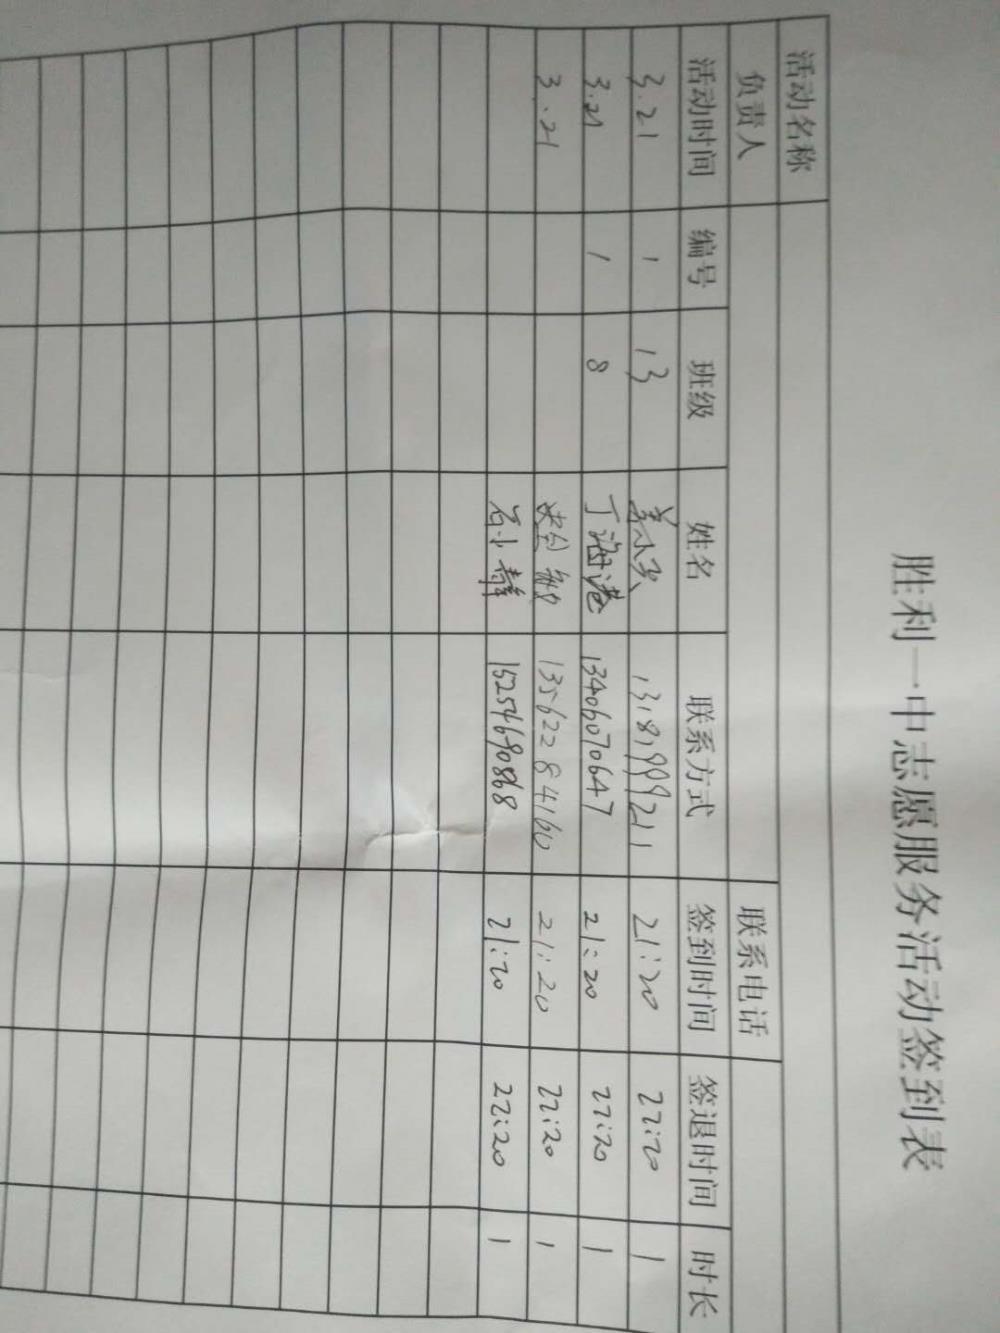 胜利一中志愿服务活动签到表
活动名称
负责人 联系电话
活动时间 编号 班级 姓名 联系方式 签到时间 签退时间 时长
3.21 1 13 13181999211 21:20 22:20 1
3.21 1 8 丁海港 13406070647 21:20 22:20 1
3.21 13562284160 21:20 22:20 1
石小静 15254690868 21:20 22:20 1